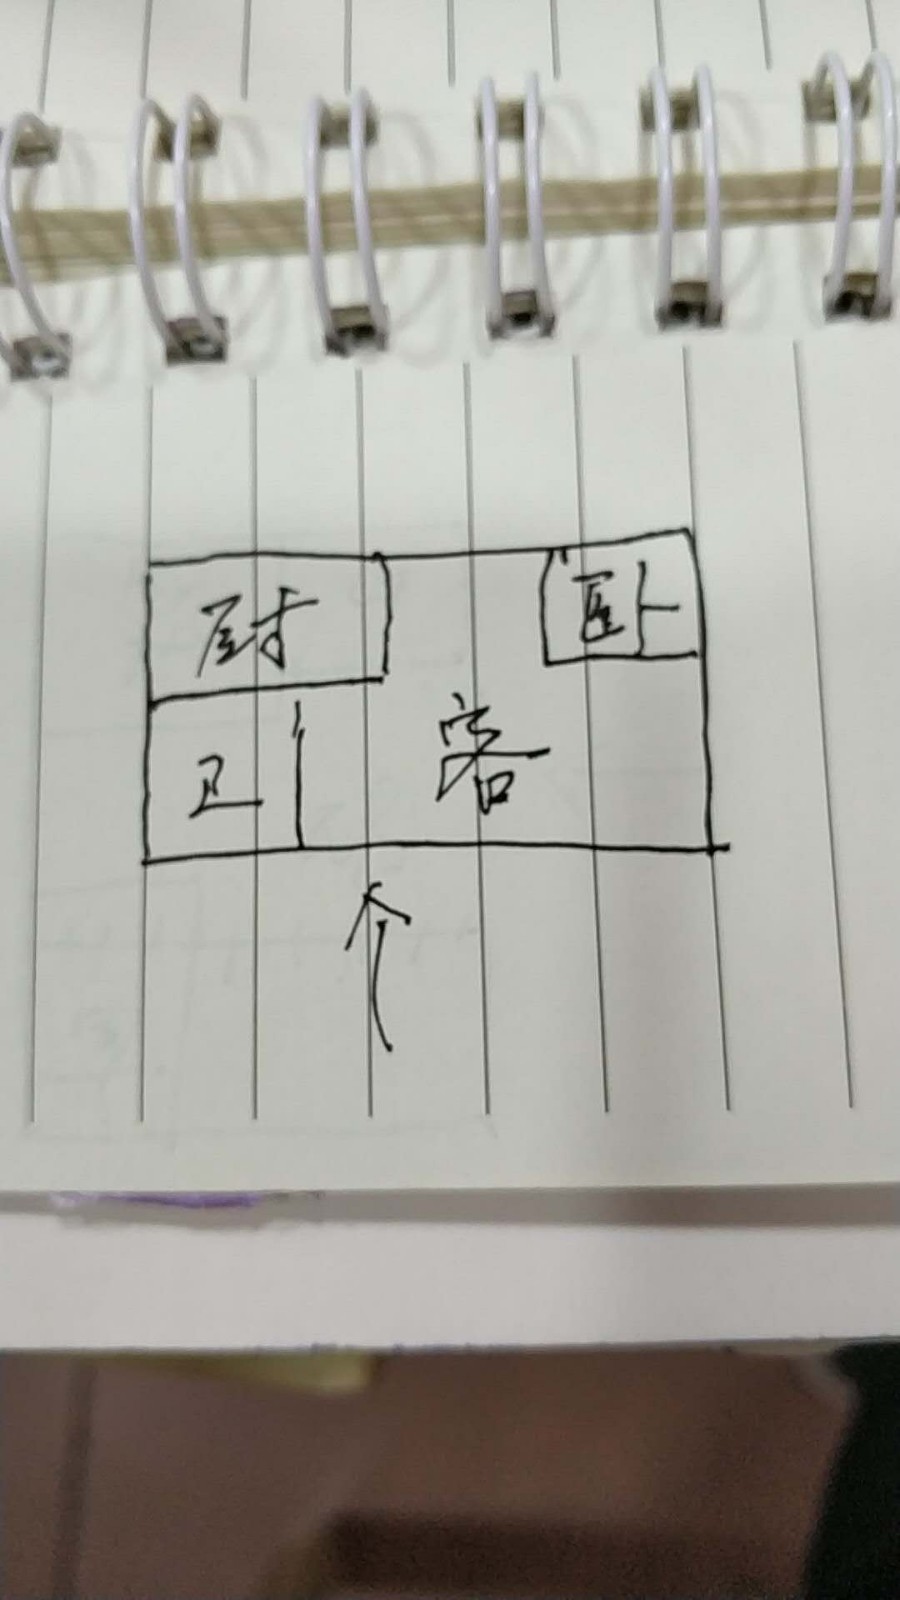 厨
卧
卫
客